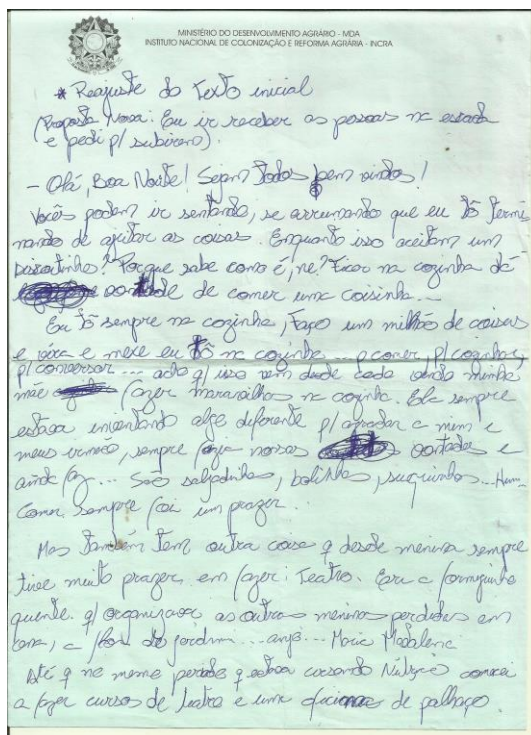 MINISTÉRIO DO DESENVOLVIMENTO AGRÁRIO - MDA
INSTITUTO NACIONAL DE COLONIZAÇÃO E REFORMA AGRÁRIA - INCRA
* Reajuste do texto inicial
(Proposta Nova: Eu ir receber as pessoas na escada
e pedi p/ subirem).
- Olá, Boa Noite! Sejam todos bem vindos!
Vocês podem ir sentando, se arrumando que eu tô termi
nando de ajeitar as coisas. Enquanto isso aceitam um
biscoitinho? Porque sabe como é, né? Ficar na cozinha dá
vontade de comer uma coisinha...
Eu tô sempre na cozinha, faço um milhão de coisas
e vira e mexe eu tô na cozinha... p/ comer, p/ cozinhar,
p/ conversar... acho q/ isso vem desde cedo vendo minha
mãe fazer maravilhas na cozinha. Ela sempre
estava inventando algo diferente p/ agradar a mim e
meus irmãos, sempre fazia nossas vontades e
ainda faz... São salgadinhos, bolinhos, suquinhos... Hum
Comer sempre foi um prazer.
Mas também tem outra coisa q desde menina sempre
tive muito prazer em fazer: Teatro. Era a formiguinha
quente q/ organizava as outras meninas perdidas em
cena, a flor do jardim... anjo... Maria Madalena
Até q no mesmo período q estava cursando Nutrição comecei
a fazer cursos de teatro e uma oficina de palhaço.